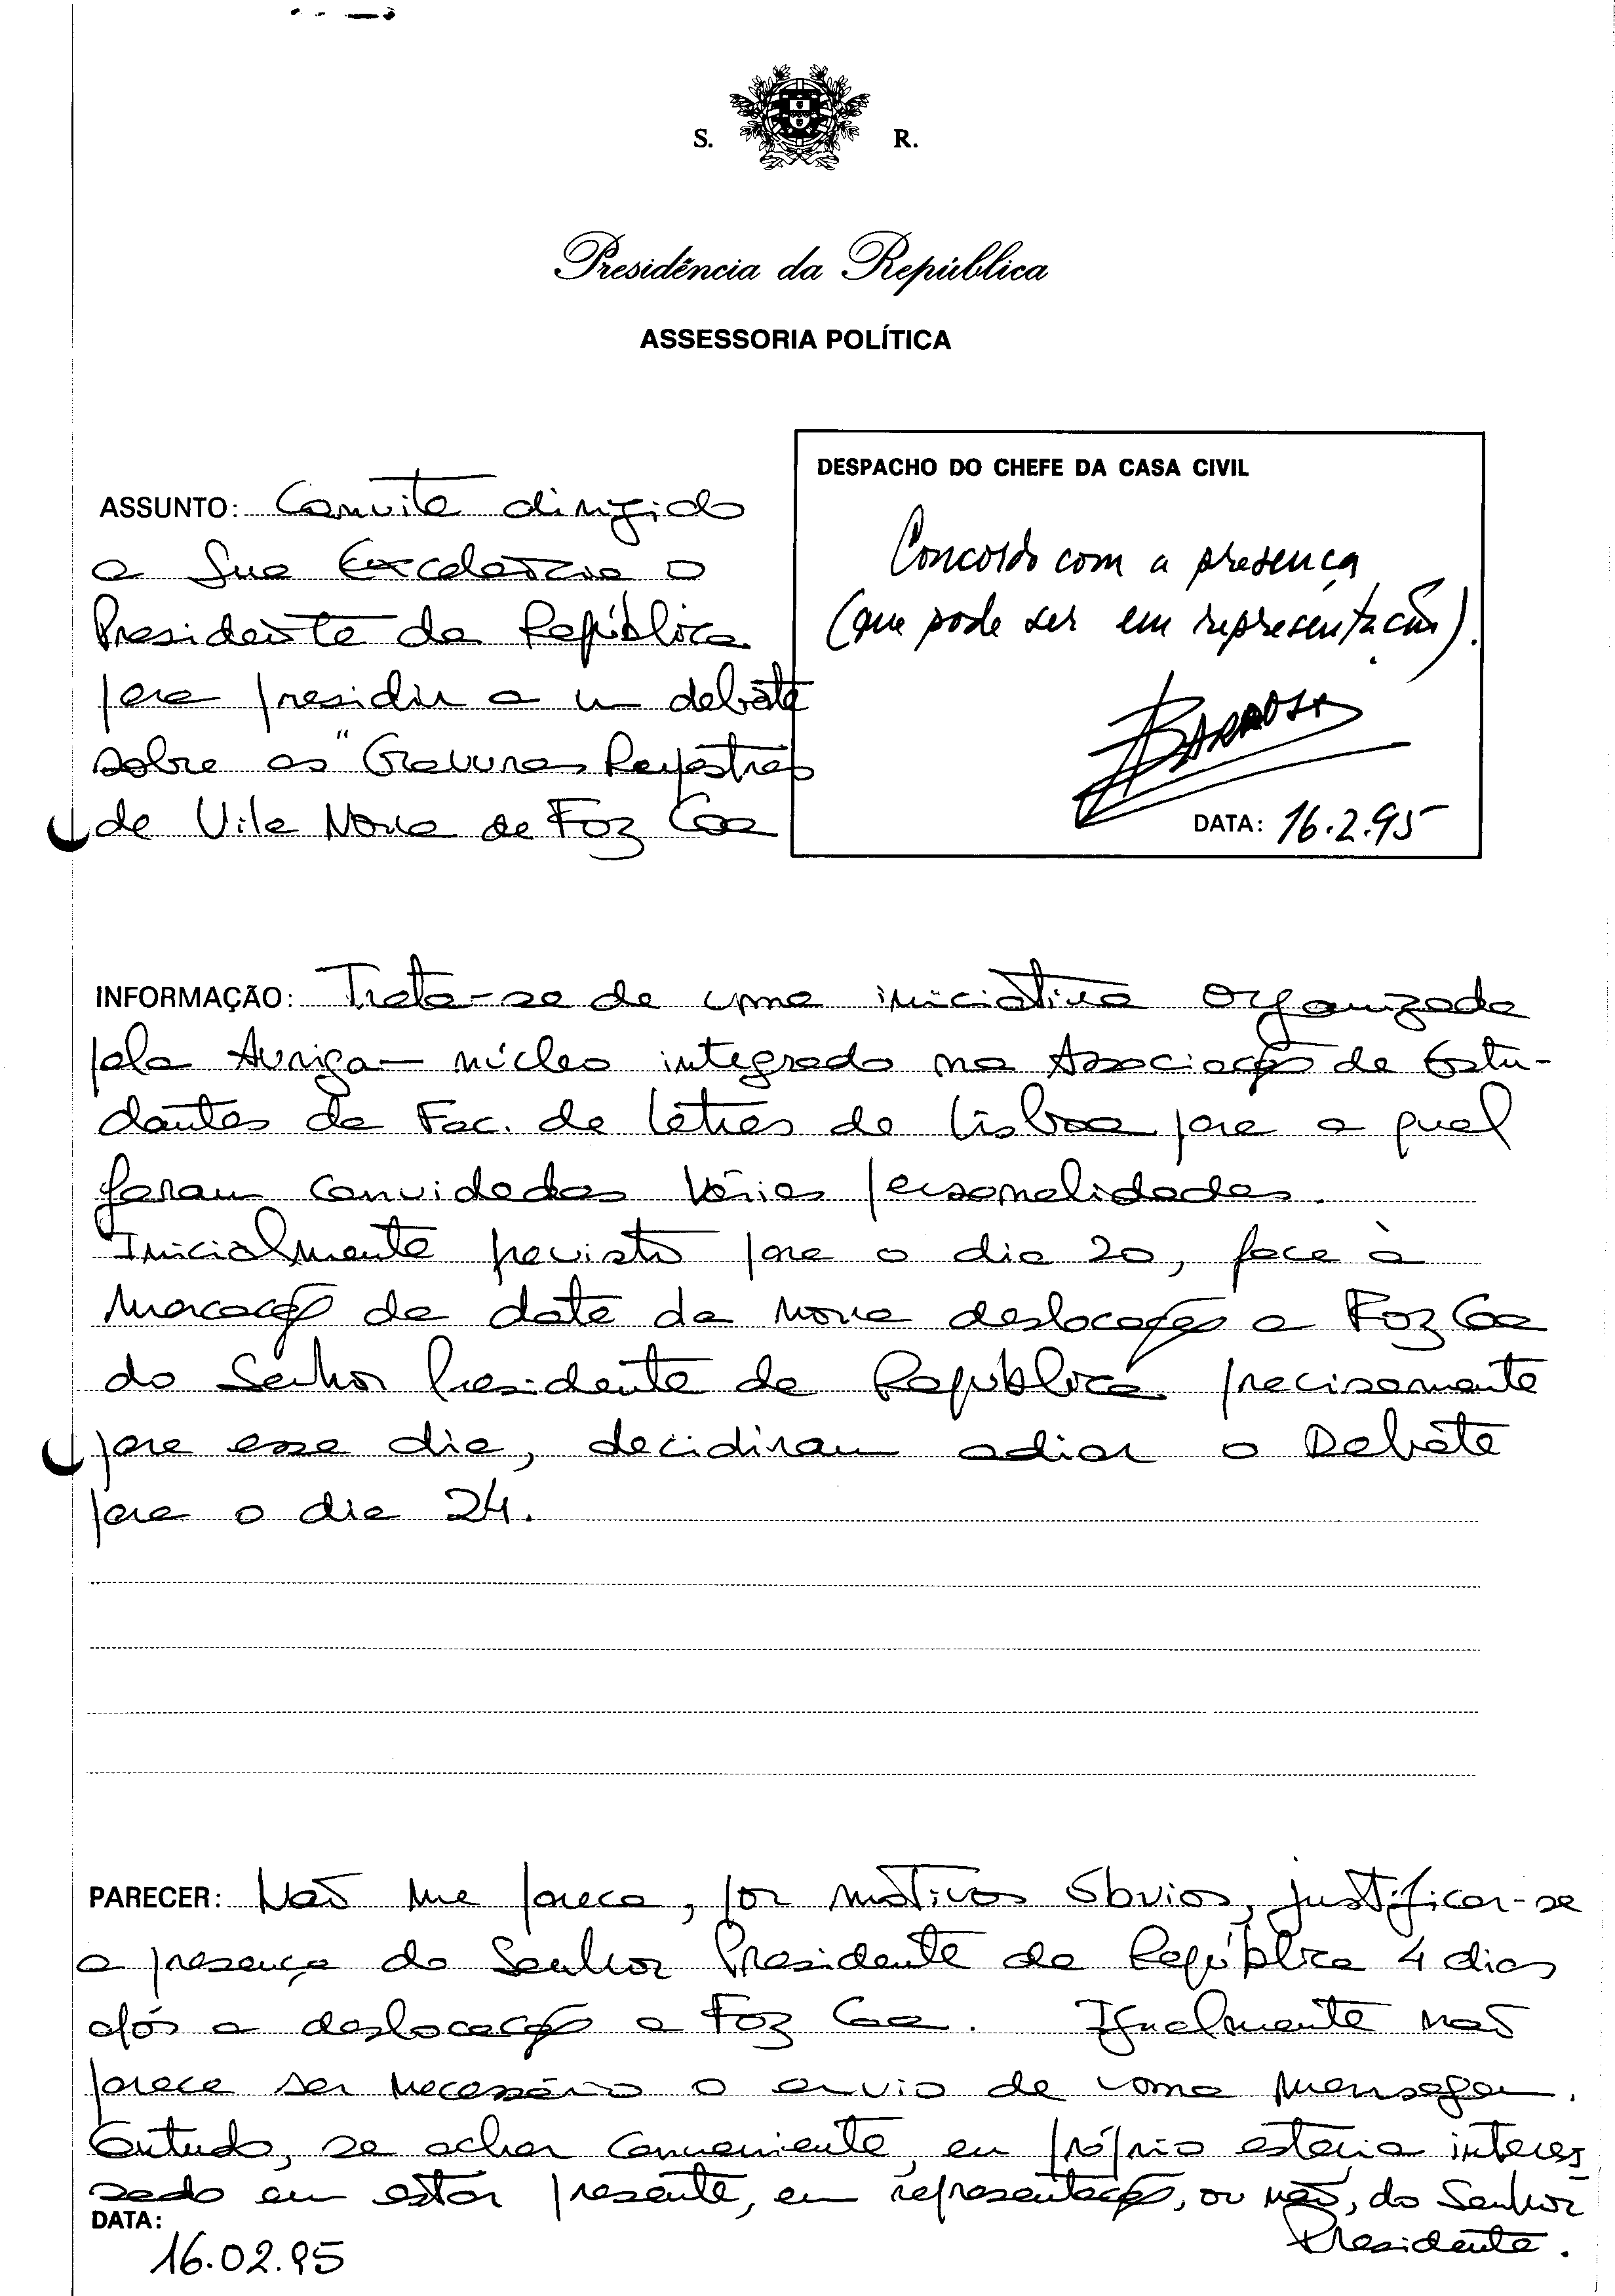 S. R.
Presidência da República
ASSESSORIA POLÍTICA
ASSUNTO: Convite dirigido
a Sua Excelência o
Presidente da República
para presidir a um debate
sobre as "Gravuras Rupestres
de Vila Nova de Foz Coa
DESPACHO DO CHEFE DA CASA CIVIL
Concordo com a presença
(que pode ser em representação).
BARROSO
DATA: 16.2.95
INFORMAÇÃO: Trata-se de uma iniciativa organizada
pela Auriga — núcleo integrado na Associação de Estu-
dantes da Fac. de Letras de Lisboa para a qual
foram convidadas várias personalidades.
Inicialmente previsto para o dia 20, face à
marcação da data da nova deslocação a Foz Coa
do Senhor Presidente da República precisamente
para esse dia, decidiram adiar o Debate
para o dia 24.
PARECER: Não me parece, por motivos óbvios, justificar-se
a presença do Senhor Presidente da República 4 dias
após a deslocação a Foz Coa. Igualmente não
parece ser necessário o envio de uma mensagem.
Contudo, se achar conveniente, eu próprio estaria interes
sado em estar presente, em representação, ou não, do Senhor
Presidente.
DATA:
16.02.95